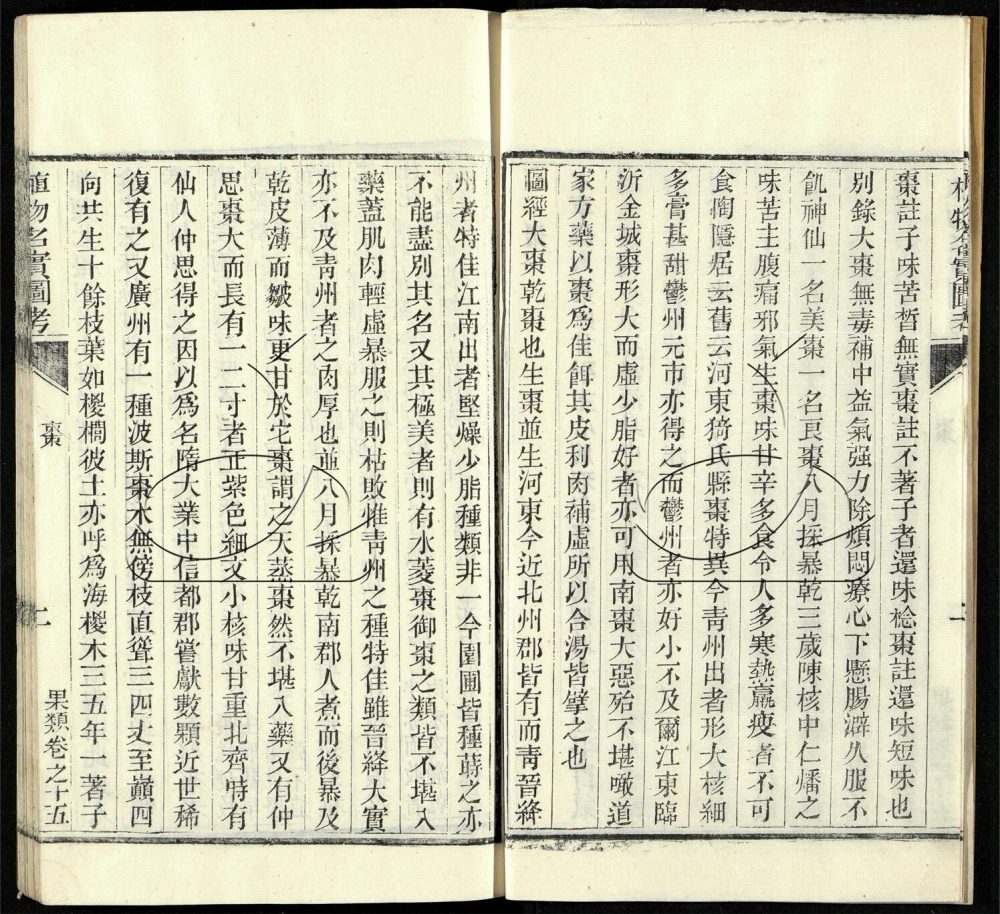 植物名實圖考
棗註子味苦皙無實棗註不著子者還味棯棗註還味短味也
別錄大棗無毒補中益氣强力除煩悶療心下懸腸澼久服不
飢神仙一名美棗一名良棗八月採暴乾三歲陳核中仁燔之
味苦主腹痛邪氣生棗味甘辛多食令人多寒熱羸瘦者不可
食陶隱居云舊云河東猗氏縣棗特異今靑州出者形大核細
多膏甚甜鬱州元市亦得之而鬱州者亦好小不及爾江東臨
沂金城棗形大而虛少脂好者亦可用南棗大惡殆不堪噉道
家方藥以棗爲佳餌其皮利肉補虛所以合湯皆擘之也
圖經大棗乾棗也生棗並生河東今近北州郡皆有而靑晉絳
二
州者特佳江南出者堅燥少脂種類非一今園圃皆種蒔之亦
不能盡別其名又其極美者則有水菱棗御棗之類皆不堪入
藥蓋肌肉輕虛暴服之則枯敗惟靑州之種特佳雖晉絳大實
亦不及靑州者之肉厚也並八月採暴乾南郡人煮而後暴及
乾皮薄而皺味更甘於它棗謂之天蒸棗然不堪入藥又有仲
思棗大而長有一二寸者正紫色細文小核味甘重北齊時有
仙人仲思得之因以爲名隋大業中信都郡嘗獻數顆近世稀
復有之又廣州有一種波斯棗木無傍枝直聳三四丈至巔四
向共生十餘枝葉如椶櫚彼土亦呼爲海椶木三五年一著子
植物名實圖考
棗
二
果類卷之十五